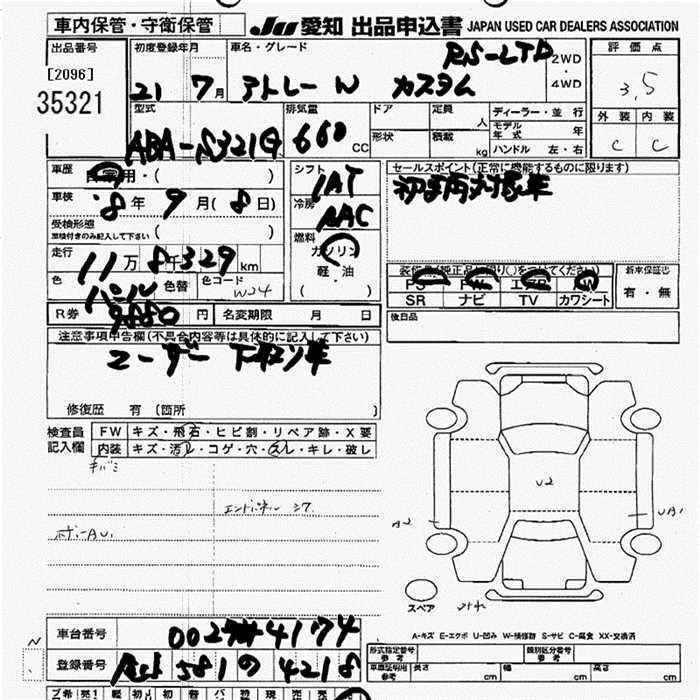 車内保管・守衛保管
JU 愛知 出品申込書 JAPAN USED CAR DEALERS ASSOCIATION
出品番号
[2096]
35321
初度登録年月
21 7月
車名・グレード
アトレーW カスタム
RS-LTD
2WD
・
4WD
評価点
3.5
外装 内装
C C
型式
ABA-S321G
排気量
660 CC
ドア
形状
定員 人
積載 kg
ディーラー・並行
モデル年式 年
ハンドル 左・右
車歴
自家用・( )
車検
8年 9月(8日)
受検形態
車検付きのみ記入して下さい ( )
走行
11万8千329km
色
パール
色替
色コード
W24
シフト
IAT
冷房
AAC
燃料
ガソリン
軽・油
( )
セールスポイント(正常に機能するものに限ります)
装備品(純正品に限り○をつけてください)
PS PW エアB AW
SR ナビ TV カワシート
新車保証書
有・無
後日品
R券 9880円
名変期限 月 日
注意事項申告欄(不具合内容等は具体的に記入して下さい)
ユーザー 下取り車
修復歴 有 [箇所 ]
検査員
記入欄
FW キズ・飛石・ヒビ割・リペア跡・X要
内装 キズ・汚レ・コゲ・穴・スレ・キレ・破レ
キバミ
エンドパネル シワ
ボデーAU1
U2
A2
UA1
スペア
A-キズ E-エクボ U-凹み W-補修跡 S-サビ C-腐食 XX-交換済
車台番号
登録番号
581 の 4218
形式指定番号
参考
類別区分番号
参考
車庫証明用
参考
長さ cm
幅 cm
高さ cm